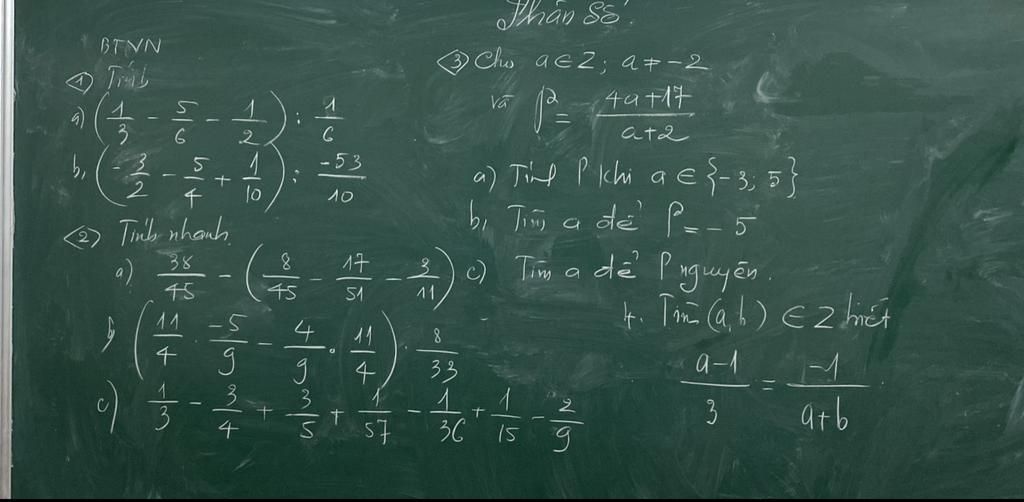 Phân số.
BTVN
<1> Tính
a) (1/3 - 5/6 - 1/2) : 1/6
b, (-3/2 - 5/4 + 1/10) : -53/10
<2> Tính nhanh.
a) 38/45 - (8/45 - 17/51 - 3/11)
b) (11/4 . -5/9 - 4/9 . 11/4) . 8/33
c) 1/3 - 3/4 + 3/5 + 1/57 - 1/36 + 1/15 - 2/9
<3> Cho a ∈ Z; a ≠ -2
và P = 4a+17/a+2
a) Tính P khi a ∈ {-3; 5}
b, Tìm a để P = -5
c) Tìm a để P nguyên.
4. Tìm (a, b) ∈ Z biết
a-1/3 = -1/a+b